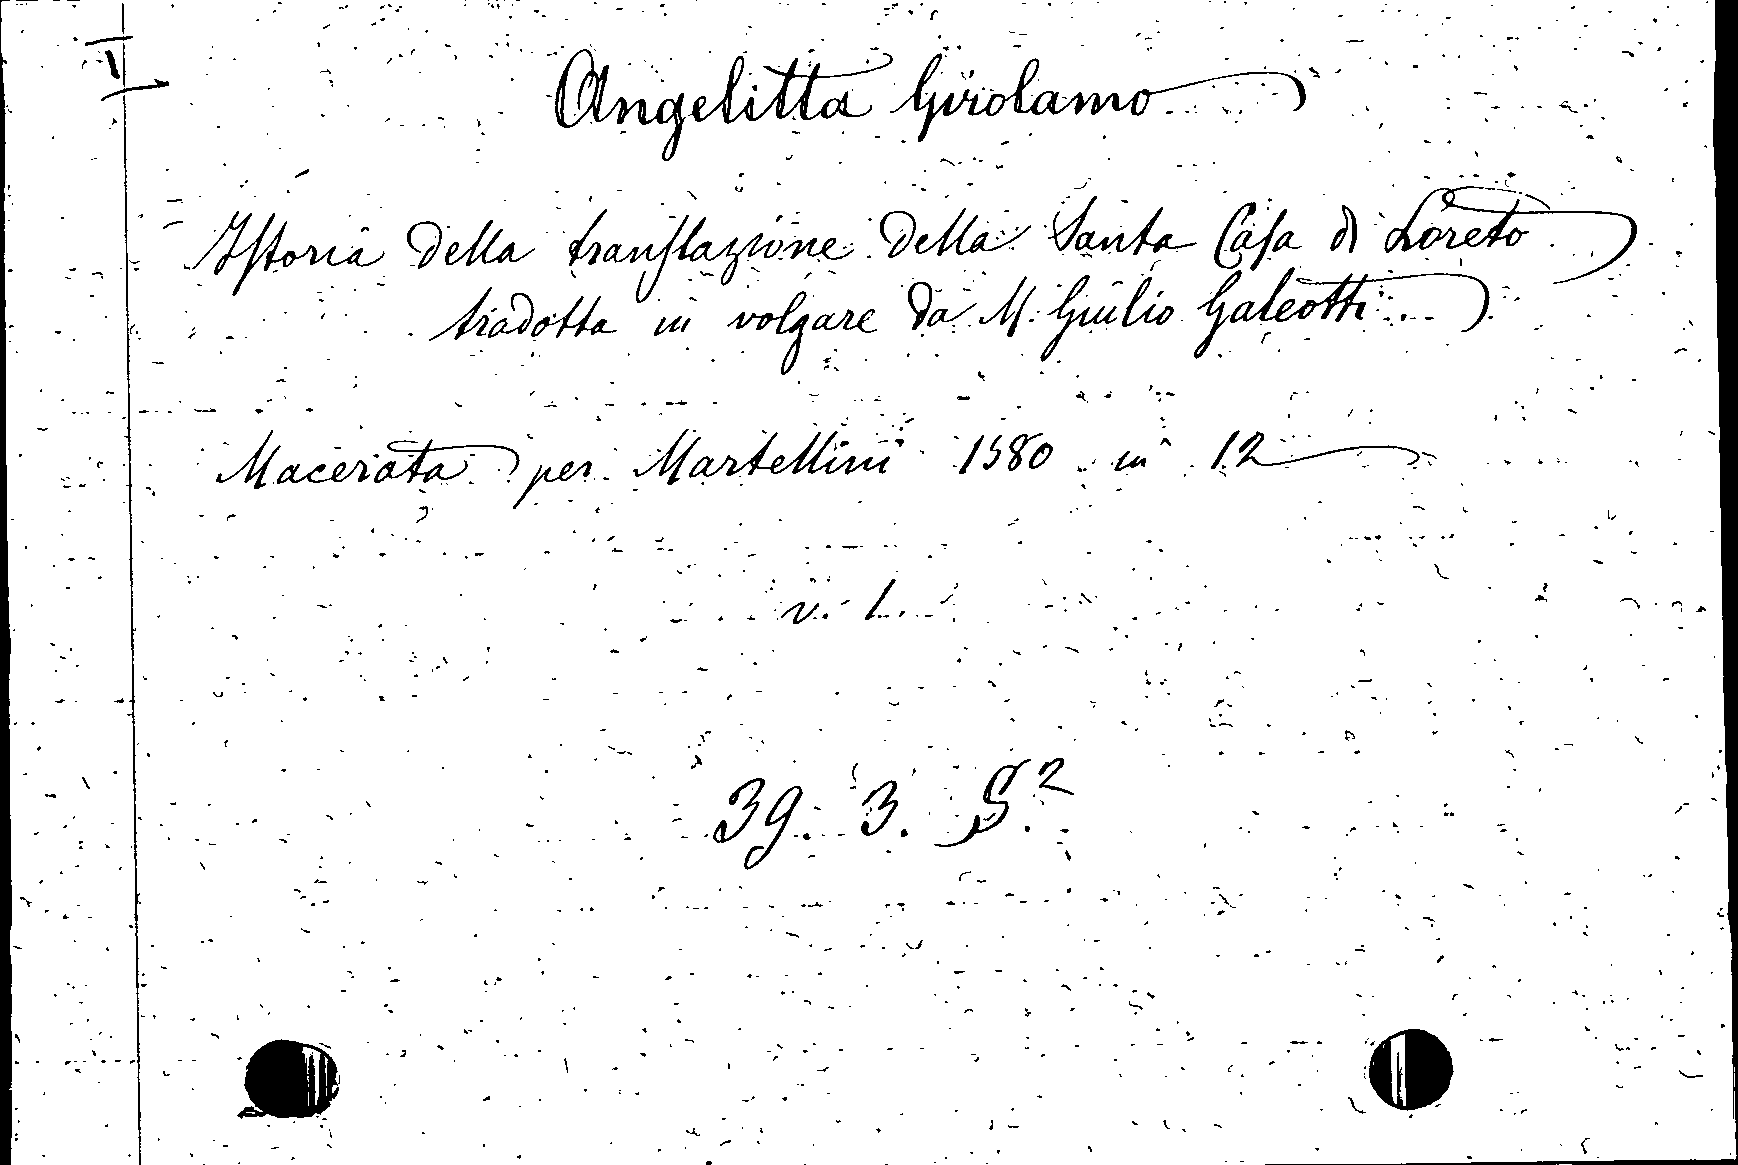 I
Angelitta Girolamo
Istoria della translazione della Santa Casa di Loreto
tradotta in volgare da M. Giulio Galeotti
Macerata per Martellini 1580 in 12
v. 1.
39. 3. S.2